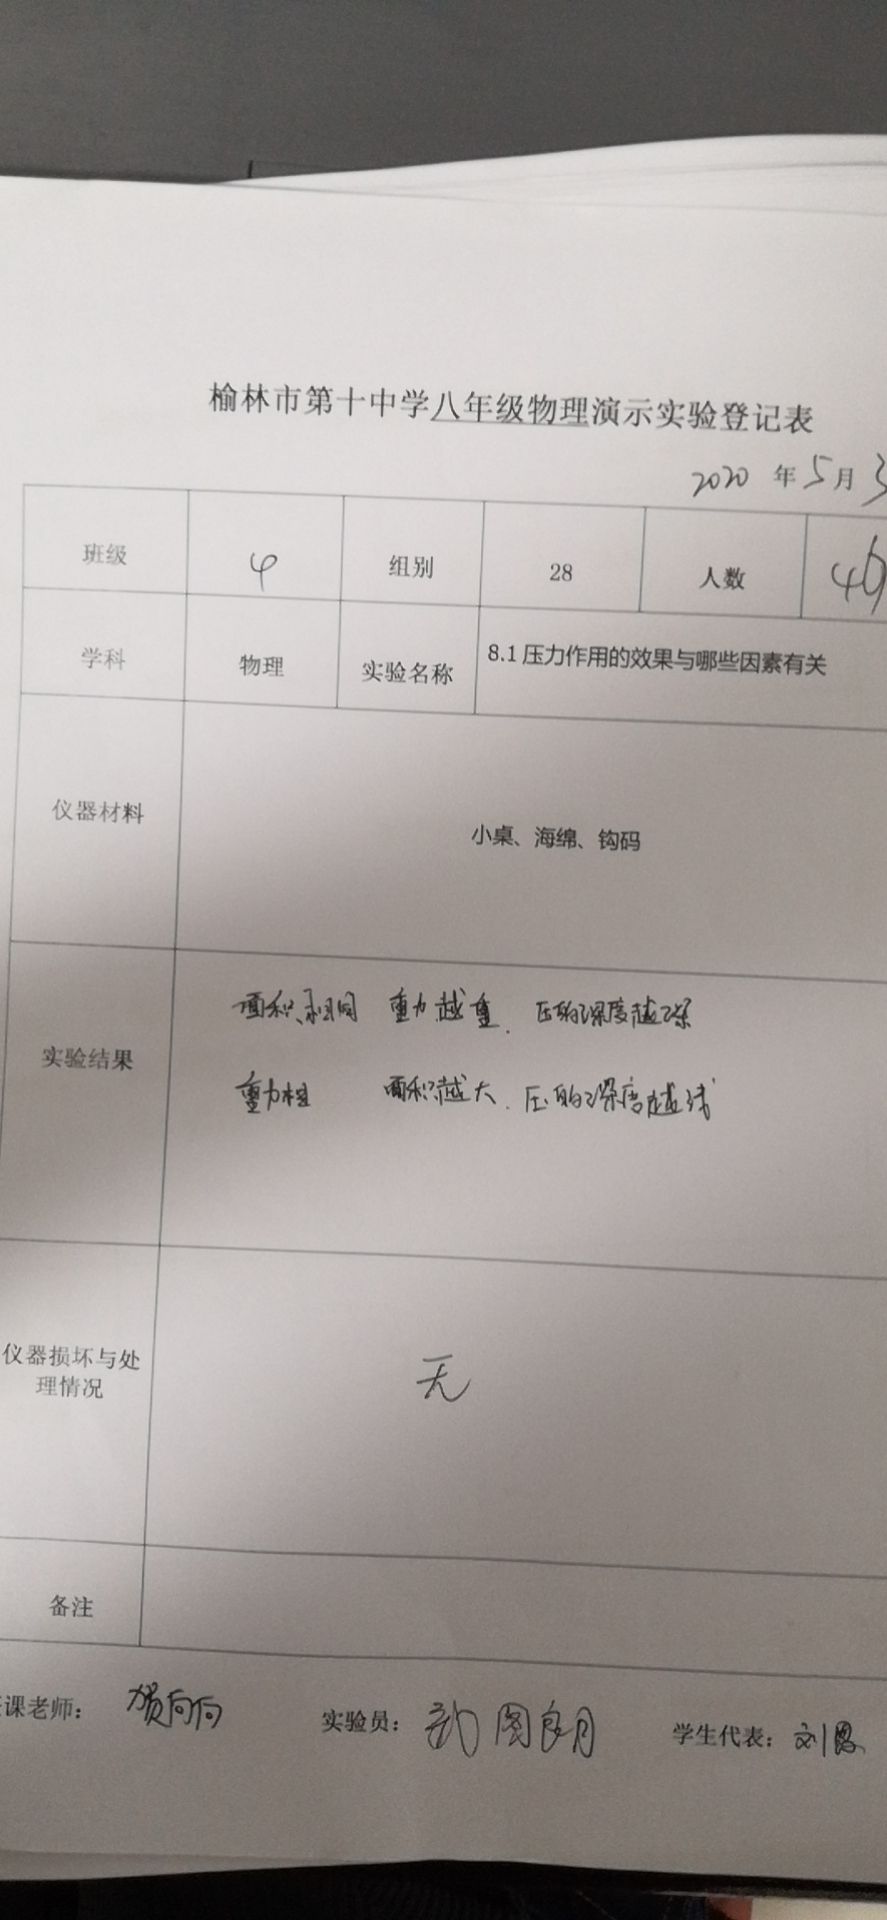 榆林市第十中学八年级物理演示实验登记表
2020 年 5 月 3
班级 4 组别 28 人数 46
学科 物理 实验名称 8.1 压力作用的效果与哪些因素有关
仪器材料 小桌、海绵、钩码
面积相同 重力越重. 压的深度越深
实验结果
重力相 面积越大. 压的深度越浅
仪器损坏与处
理情况
无
备注
课老师: 贺向向 实验员: 武图朗 学生代表: 刘